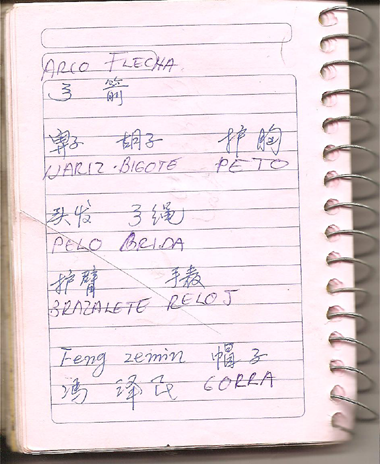 ARCO FLECHA
弓 箭
鼻子 胡子 护胸
NARIZ·BIGOTE PETO
头发 弓绳
PELO BRIDA
护臂 手表
BRAZALETE RELOJ
Feng zemin 帽子
冯 泽民 GORRA